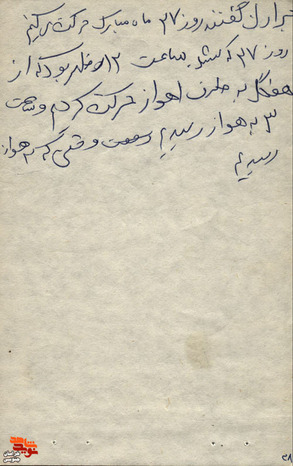 گفتند روز ۲۷ ماه مبارک حرکت می‌کنیم
روز ۲۷ که شد ساعت ۱۲ ظهر بود که از
به طرف اهواز حرکت کردم و ساعت
۳ به هواز رسیدیم وقتی که به هواز
رسیدیم
نوید شاهد
۲۸